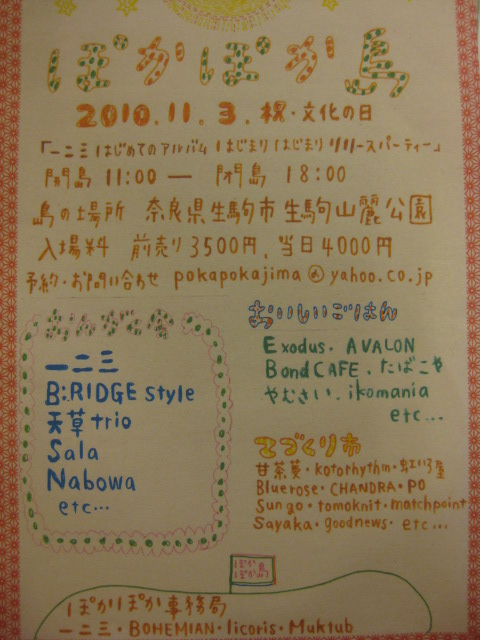 ぽかぽか島
2010.11.3.祝・文化の日
「一二三はじめてのアルバムはじまりはじまりリリースパーティー」
開島 11:00 — 閉島 18:00
島の場所 奈良県生駒市生駒山麓公園
入場料 前売り3500円、当日4000円
予約・お問い合わせ pokapokajima@yahoo.co.jp
おんがく会
一二三
B:RIDGE style
天草trio
Sala
Nabowa
etc...
おいしいごはん
Exodus. AVALON
Bond CAFE. たばこや
やむさい. ikomania
etc...
てづくり市
甘茶蔓・kotorhythm・虹いろ屋
Bluerose・CHANDRA・PO
Sun go・tomoknit・matchpoint
Sayaka・goodnews・etc...
ぽかぽか島
ぽかぽか事務局
一二三・BOHEMIAN・licoris・Muktub